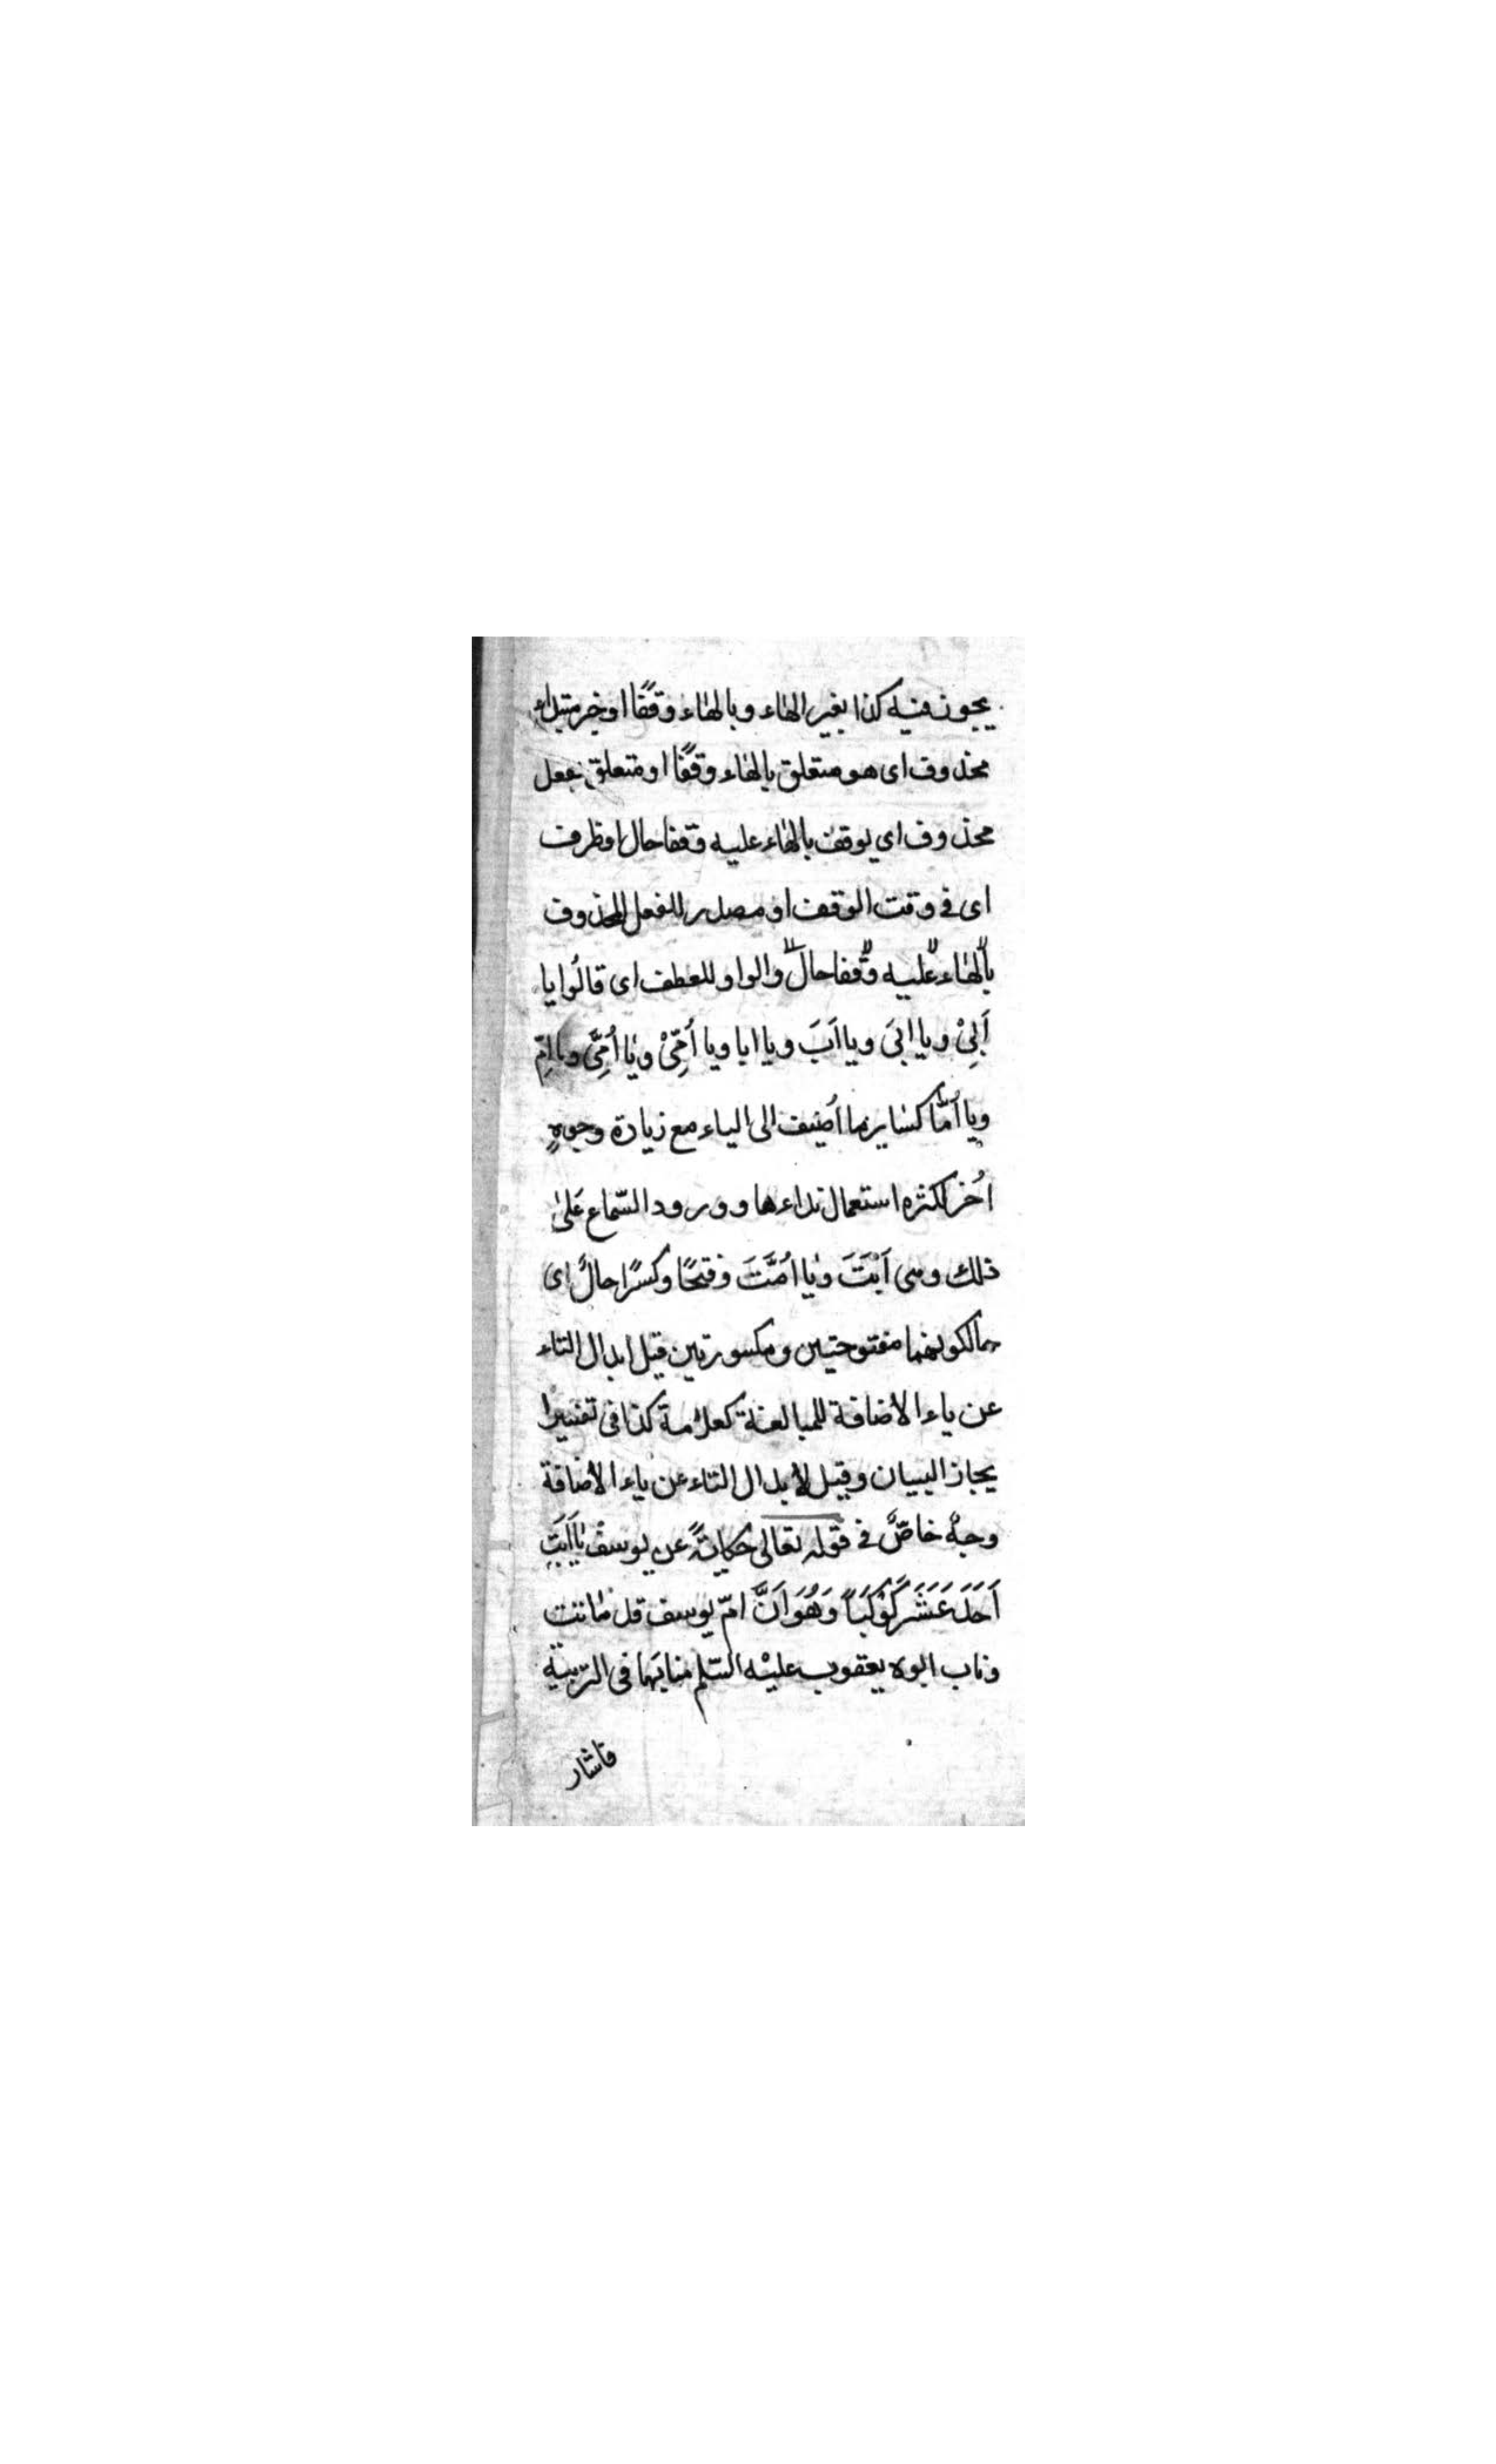 يجوز فيه كذا بغير الهاء وبالهاء وقفًا او خبر مبتداء
محذوف اى هو متعلق بالهاء وقفًا او متعلق بفعل
محذوف اى يوقف بالهاء عليه وقفا حال او ظرف
اى فى وقت الوقف او مصدر للفعل المحذوف
بالهاء عليه وقفا حال والواو للعطف اى قالُوا يا
اَبِىْ ويا ابىَ ويا اَبَ ويا ابا ويا اُمِّىْ ويا اُمِّىَ ويا امِّ
ويا اُمّا كساير ما اُضيف الى الياء مع زيادة وجوهٍ
اُخر لكثره استعمال نداءها وورود السّماع عَلىٰ
ذلك وهى اَبَتَ ويا اُمَّتَ وفتحًا وكسرًا حالٌ اى
حالكونهما مفتوحتين ومكسورتين قيل ابدال التاء
عن ياء الاضافة للمبالغة كعلامة كذا فى تفسير ا
يجاز البيان وقيل لابدال التاء عن ياء الاضافة
وجهٌ خاصٌّ فى قوله تعالى حكايةً عن يوسفْ يا اَبَتِ
اَحَدَ عَشَرَ كَوْكَبَاً وَهُوَ اَنَّ امّ يوسف قد ماتت
وناب ابوه يعقوب عليْه السّلم منابَها فى التربية
فاشار